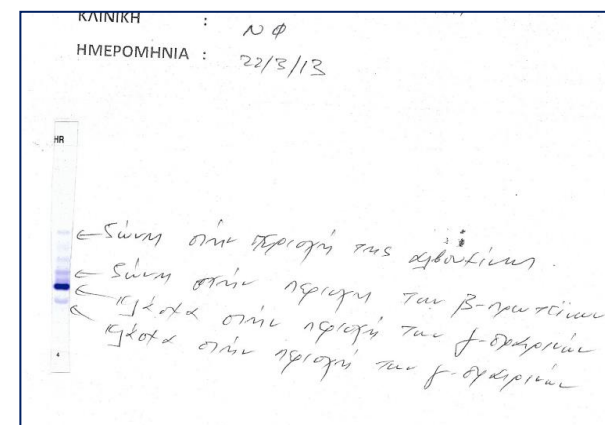 ΚΛΙΝΙΚΗ :
ΝΦ
ΗΜΕΡΟΜΗΝΙΑ :
22/3/13
HR
ζώνη στην περιοχή της αλβουμίνης.
ζώνη στην περιοχή των β-πρωτεϊνών
κλάσμα στην περιοχή των γ-σφαιρινών
κλάσμα στην περιοχή των γ-σφαιρινών
4